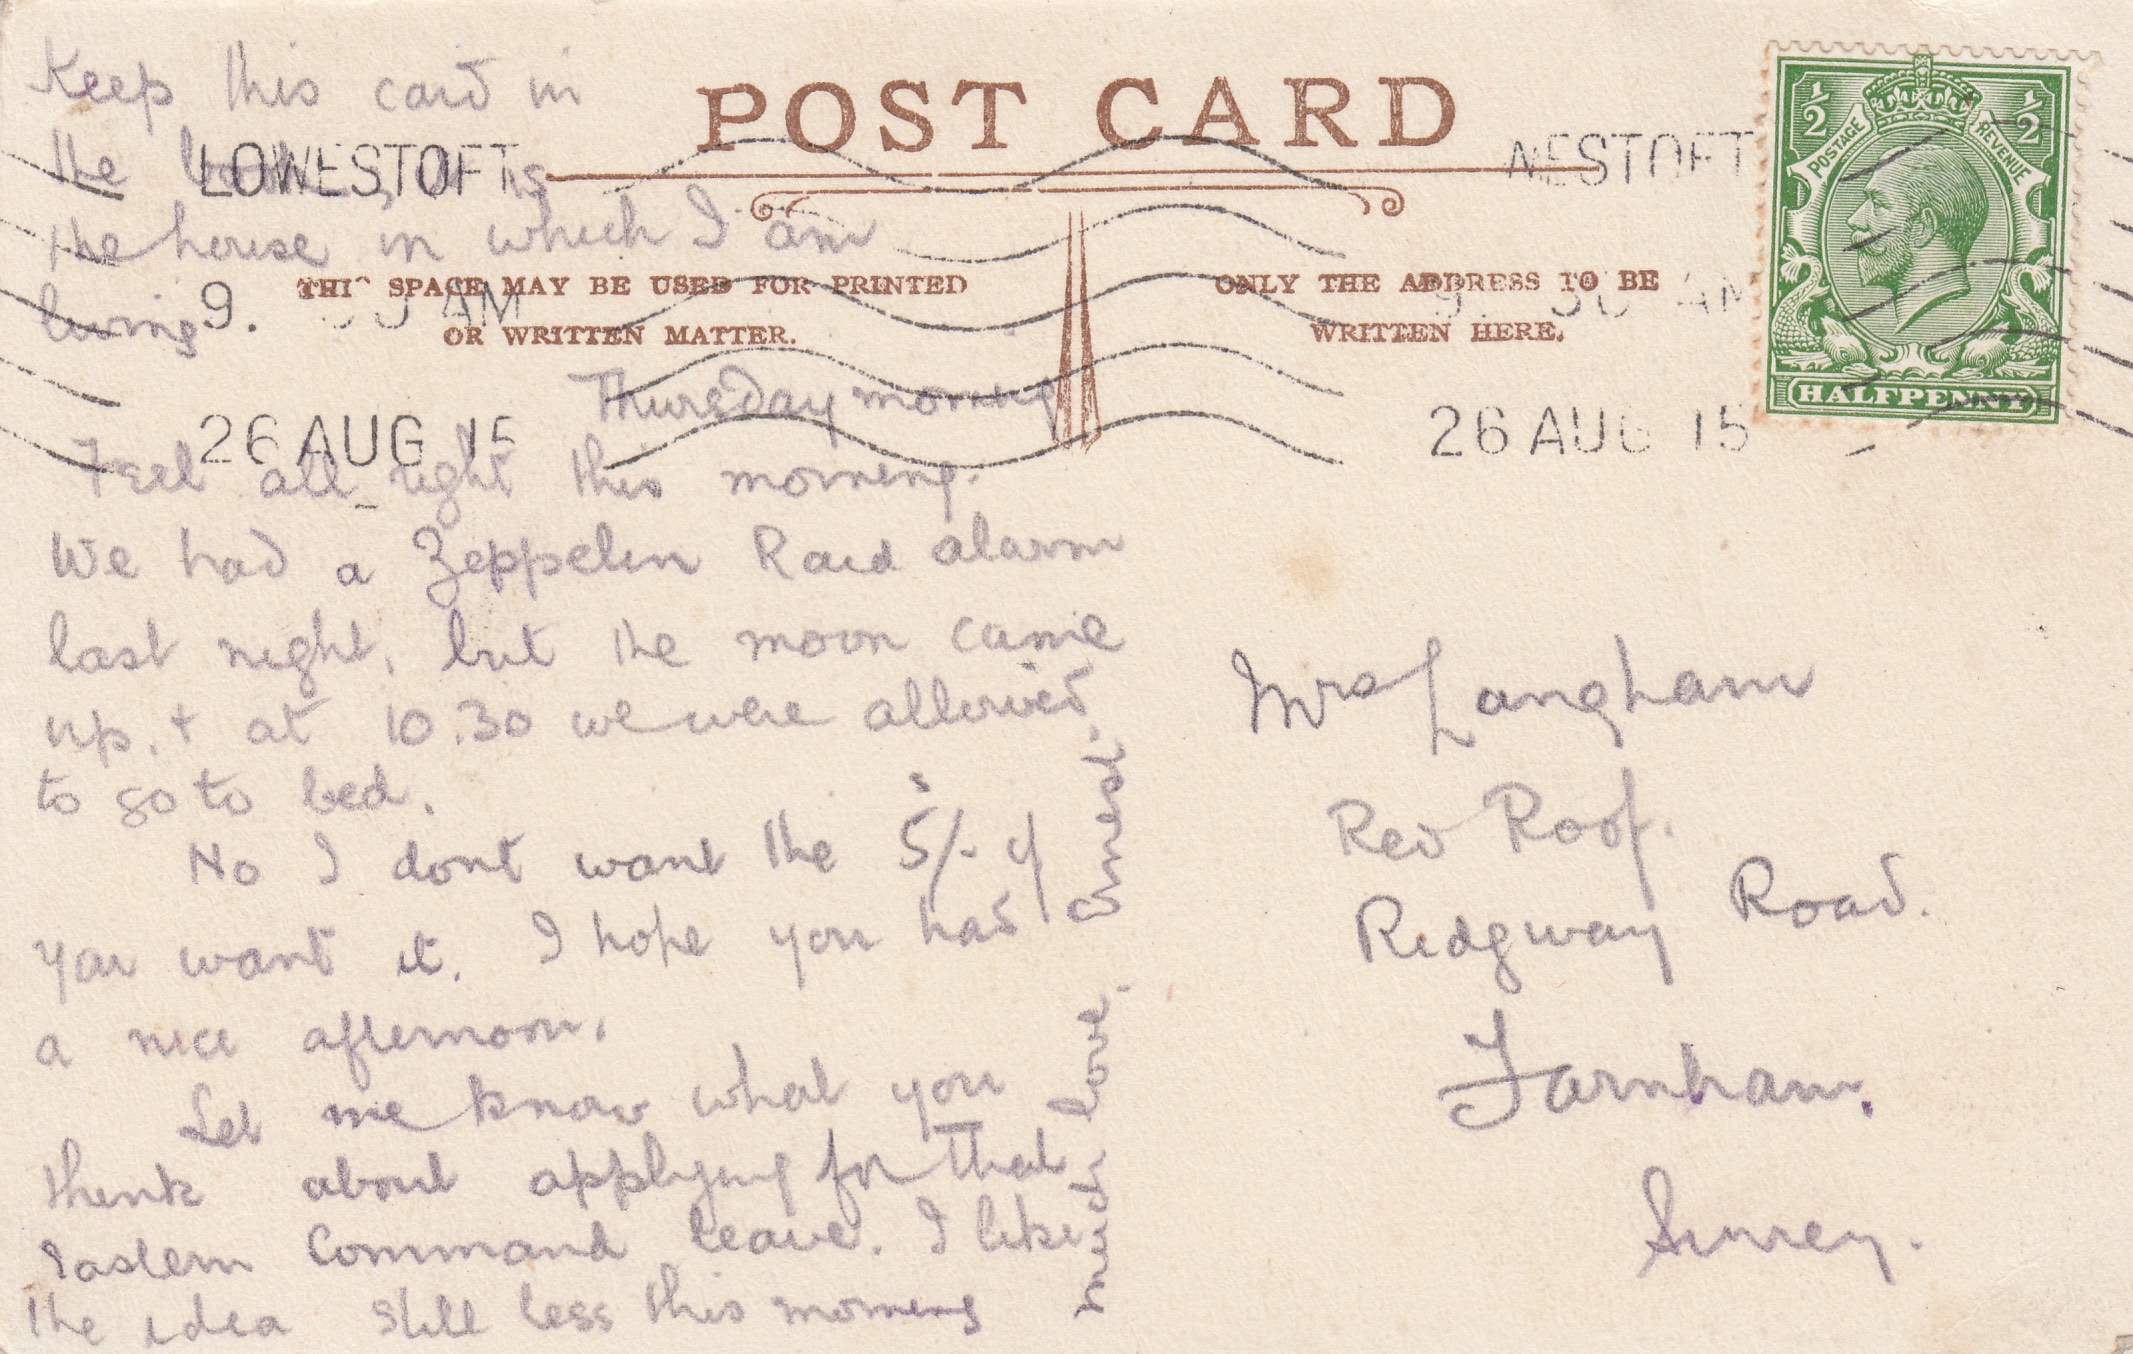 Keep this card in
the book, it is
the house in which I am
living
POST CARD
THIS SPACE MAY BE USED FOR PRINTED
OR WRITTEN MATTER.
ONLY THE ADDRESS TO BE
WRITTEN HERE.
LOWESTOFT
9. 30 AM
26 AUG 15
WESTOFT
9. 30 AM
26 AUG 15
½ ½
POSTAGE REVENUE
HALFPENNY
Thursday morning
Feel all right this morning.
We had a Zeppelin Raid alarm
last night, but the moon came
up, + at 10.30 we were allowed
to go to bed.
No I dont want the 5/- if
you want it. I hope you had
a nice afternoon.
Let me know what you
think about applying for that
Eastern Command leave. I like
the idea still less this morning
much love.
Ernest.
Mrs Langham
Red Roof.
Ridgway Road.
Farnham.
Surrey.